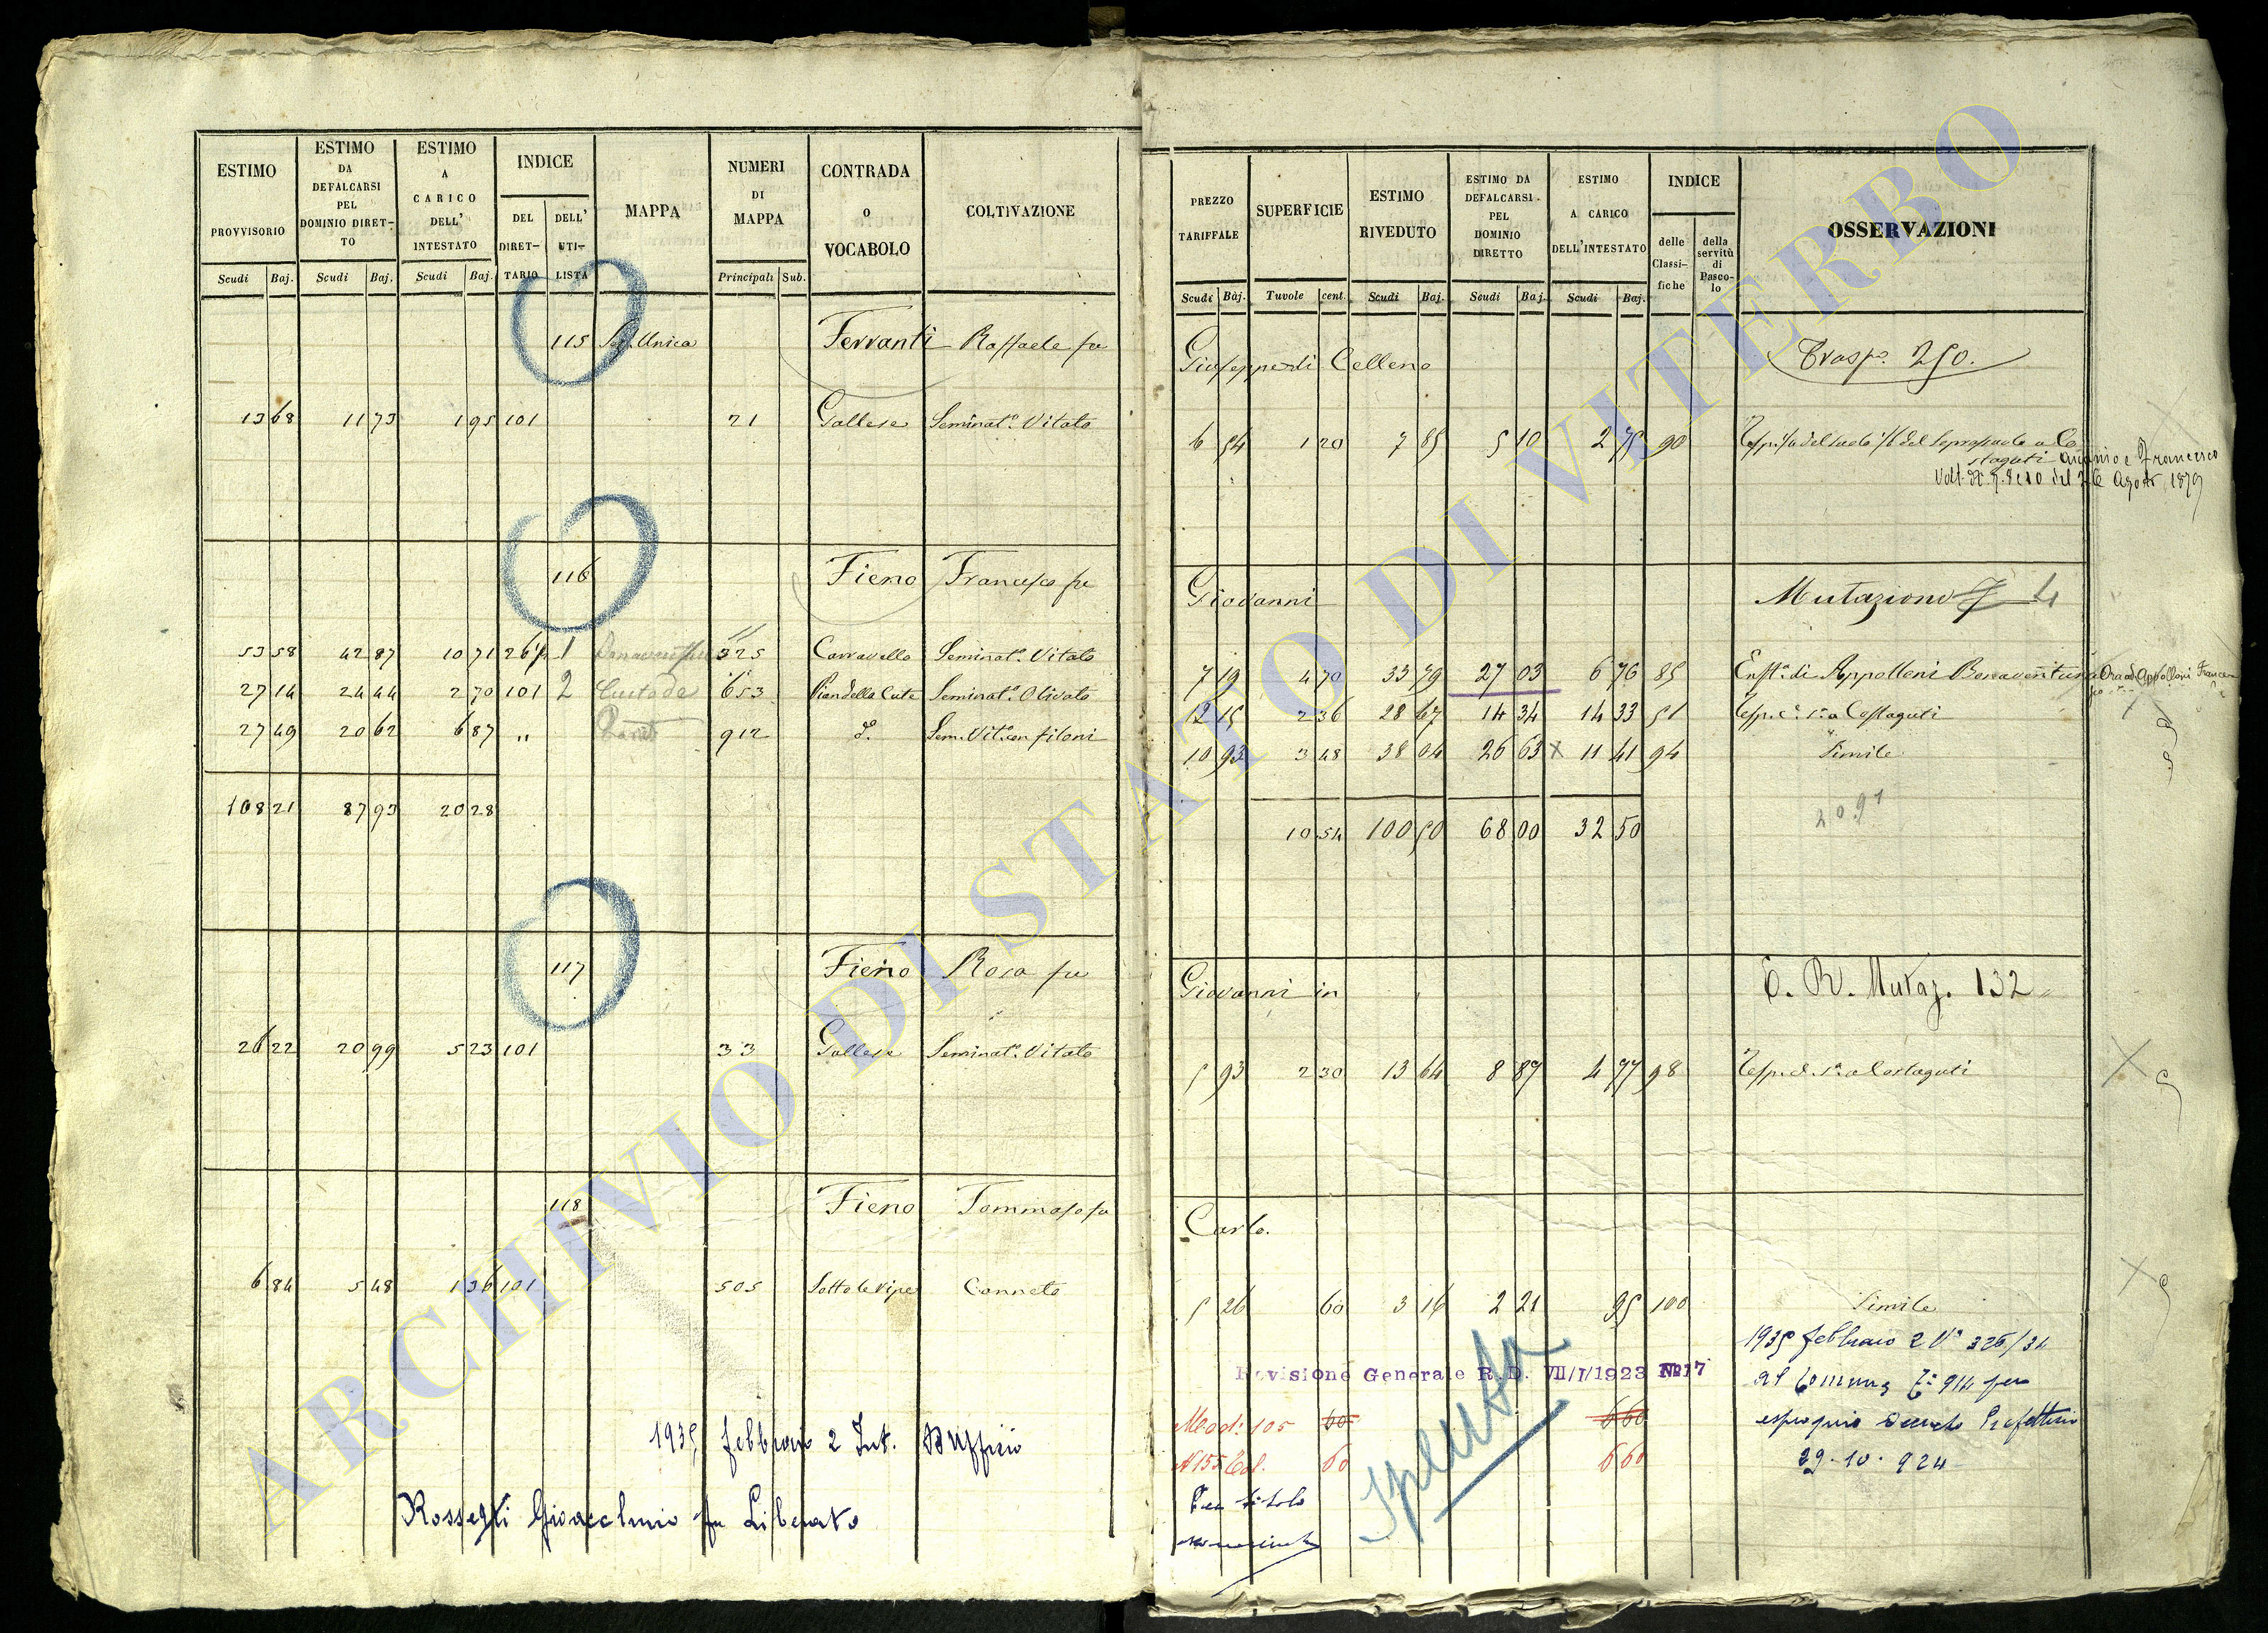 ESTIMO PROVVISORIO Scudi Baj.
ESTIMO DA DEFALCARSI PEL DOMINIO DIRET-TO Scudi Baj.
ESTIMO A CARICO DELL' INTESTATO Scudi Baj.
INDICE DEL DIRET-TARIO DELL' UTI-LISTA
MAPPA
NUMERI DI MAPPA Principali Sub.
CONTRADA O VOCABOLO
COLTIVAZIONE
115 Sez. Unica Ferranti Raffaele fu
13 68 11 73 1 95 101 21 Gallese Seminat.o Vitato
116 Fieno Francesco fu
53 58 42 87 10 71 26 1 325 Carravalle Seminat.o Vitato
27 14 24 44 2 70 101 2 Custode 653 Pian della Cute Seminat.o Olivato
27 49 20 62 6 87 " 912 d.o Sem. Vit. con filoni
108 21 87 93 20 28
117 Fieno Rosa fu
26 22 20 99 5 23 101 33 Gallese Seminat.o Vitato
118 Fieno Tommaso fu
6 84 5 48 1 36 101 505 Sotto le Ripe Canneto
1935 febbraio 2 Int. D'Ufficio
Rossetti Gioacchino fu Liberato
PREZZO TARIFFALE Scudi Baj.
SUPERFICIE Tavole cent.
ESTIMO RIVEDUTO Scudi Baj.
ESTIMO DA DEFALCARSI PEL DOMINIO DIRETTO Scudi Baj.
ESTIMO A CARICO DELL'INTESTATO Scudi Baj.
INDICE delle Classi-fiche della servitù di Pasco-lo
OSSERVAZIONI
Giuseppe di Celleno Trasp.o 250.
6 54 1 20 7 85 5 10 2 75 90 del suolo del soprasuolo a Co
staguti Ascanio e Francesco
Volt. del 26 Agosto 1879
Giovanni Mutazione 4
7 19 4 70 33 79 27 03 6 76 85 Enf.a di Appolloni Bonaventura Ora ad Appolloni Francesco
12 15 2 36 28 67 14 34 14 33 51 Costaguti
10 93 3 48 38 04 26 63 x 11 41 94 Simile
10 54 100 50 68 00 32 50
20.91
Giovanni in E. R. Mutaz. 132
5 93 2 30 13 64 8 87 4 77 98 a Costaguti
Carlo.
5 26 60 3 16 2 21 95 100 Simile
1935 febbraio 2 V.a 326/34
Revisione Generale R. D. VII/I/1923 N.17
al Comune 914 per
Mod. 105 60 6 60
esproprio Decreto Prefettizio
N 155 Col. 60 6 60
29-10-924
Per titolo
Spenta
ARCHIVIO DI STATO DI VITERBO